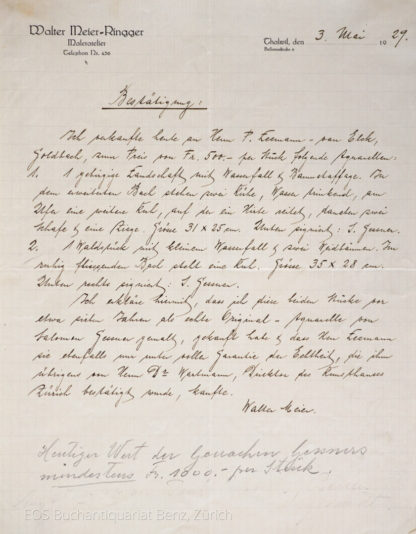 Walter Meier-Ringger
Maleratelier
Telephon Nr. 456
Thalwil, den 3. Mai 1929.
Bestätigung:
Ich verkaufte heute an Herrn P. Leemann - van Elck,
Goldbach, zum Preis von Fr. 500.- per Stück folgende Aquarellen:
1. 1 gebirgige Landschaft mit Wasserfall & Baumstaffage. In
dem erweiterten Bach stehen zwei Kühe, Wasser trinkend, am
Ufer eine weitere Kuh, auf der ein Hirte reitet, daneben zwei
Schafe & eine Ziege. Grösse 31 x 25 cm. Unten signiert: S. Gessner.
2. 1 Waldstück mit kleinem Wasserfall & zwei Weidbäumen. Im
ruhig fliessenden Bach steht eine Kuh. Grösse 35 x 28 cm.
Unten rechts signiert: S. Gessner.
Ich erkläre hiermit, dass ich diese beiden Stücke vor
etwa sieben Jahren als echte Original-Aquarelle von
Salomon Gessner gemalt, gekauft habe & dass Herr Leemann
sie ebenfalls nur unter voller Garantie der Echtheit, die ihm
übrigens von Herrn Dr. Wartmann, Direktor des Kunsthauses
Zürich bestätigt wurde, kaufte.
Walter Meier.
Heutiger Wert der Gouachen Gessners
mindestens Fr. 1000.- per Stück.
EOS Buchantiquariat Benz, Zürich